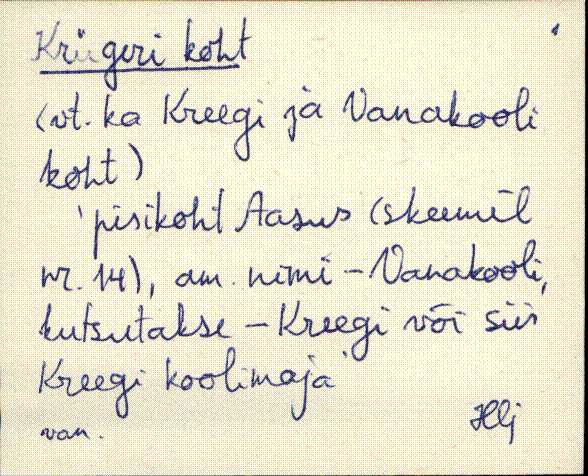 Krügeri koht
(vt. ka Kreegi ja Vanakooli
koht)
'pisikoht Aasus (skeemil
nr. 14), am. nimi – Vanakooli,
kutsutakse – Kreegi või siis
Kreegi koolimaja'
van.